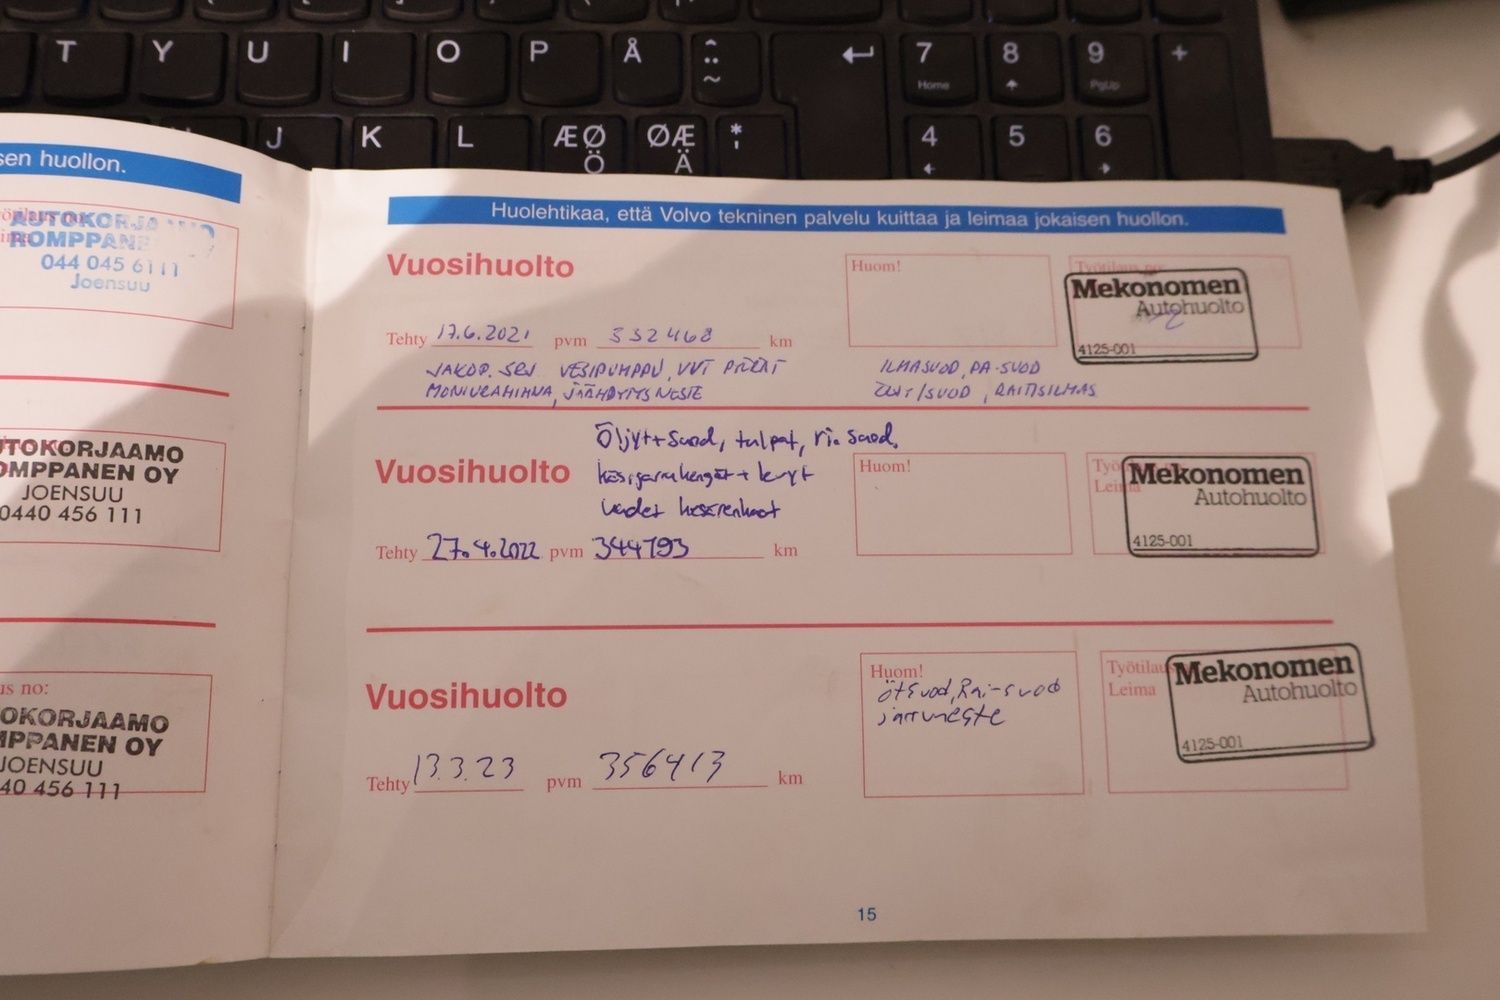 T Y U I O P Å ^ ¨ ~ ↵ 7 Home 8 9 PgUp +
J K L ÆØ Ö ØÆ Ä * ' 4 5 6
sen huollon.
AUTOKORJA
ROMPPANE
044 045 6111
Joensuu
UTOKORJAAMO
OMPPANEN OY
JOENSUU
0440 456 111
us no:
OKORJAAMO
MPPANEN OY
JOENSUU
40 456 111
Huolehtikaa, että Volvo tekninen palvelu kuittaa ja leimaa jokaisen huollon.
Vuosihuolto
Huom!
Työtilaus no:
Mekonomen
Autohuolto
4125-001
Tehty 17.6.2021 pvm 332468 km
JAKOP. SRJ VESIPUMPPU, VVT PYÖRÄT
MONIURAHIHNA, JÄÄHDYTYSNESTE
ILMASUOD, PA-SUOD
ÖLJYT/SUOD, RAITISILMAS
Öljyt+Suod, tulpat, ri.suod.
Vuosihuolto
käsijarrukengät + levyt
Huom!
Leima
Mekonomen
Autohuolto
4125-001
Tehty 27.4.2022 pvm 344793 km
Vuosihuolto
Huom!
öt suod, Rai-suod
jarruneste
Työtilaus
Leima
Mekonomen
Autohuolto
4125-001
Tehty 13.3.23 pvm 356413 km
15